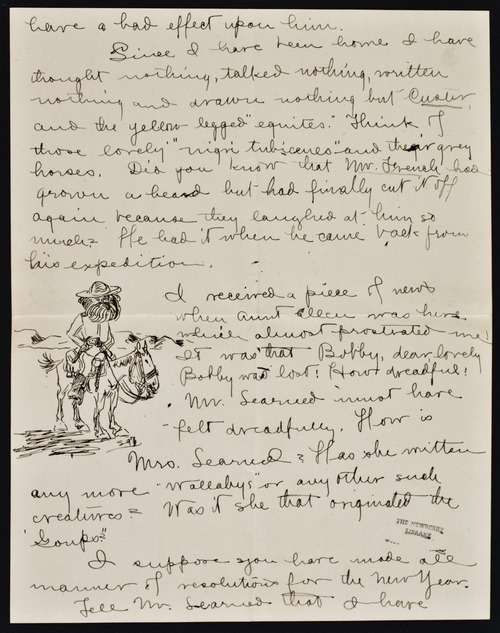 have a bad effect upon him.
Since I have been home I have
thought nothing, talked nothing, written
nothing and drawn nothing but Custer,
and the yellow legged "equites." Think of
those lovely "nigri tubicenes" and their grey
horses. Did you know that Mr. French had
grown a beard but had finally cut it off
again because they laughed at him so
much? He had it when he came back from
his expedition.
I received a piece of news
when Aunt Ellen was here
which almost prostrated me!
It was that Bobby, dear, lovely
Bobby was lost! How dreadful!
Mr. Learned must have
felt dreadfully. How is
Mrs. Learned? Has she written
any more "wallabys" or any other such
creatures? Was it she that originated the
"Goups?"
THE NEWBERRY
LIBRARY
I suppose you have made all
manner of resolutions for the New Year.
Tell Mr. Learned that I have